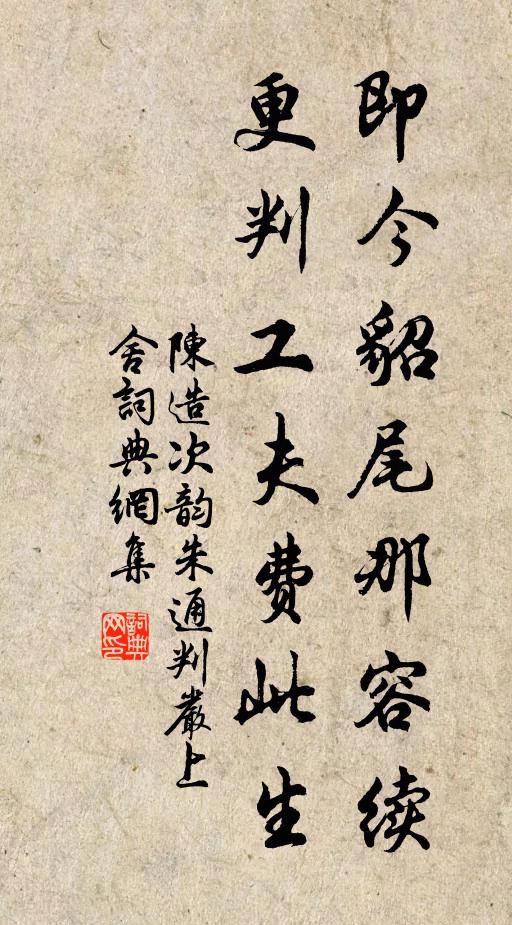 即今貂尾那容续
更判工夫费此生
陳造次韵朱通判嚴上
舍詞典網集
詞典网印